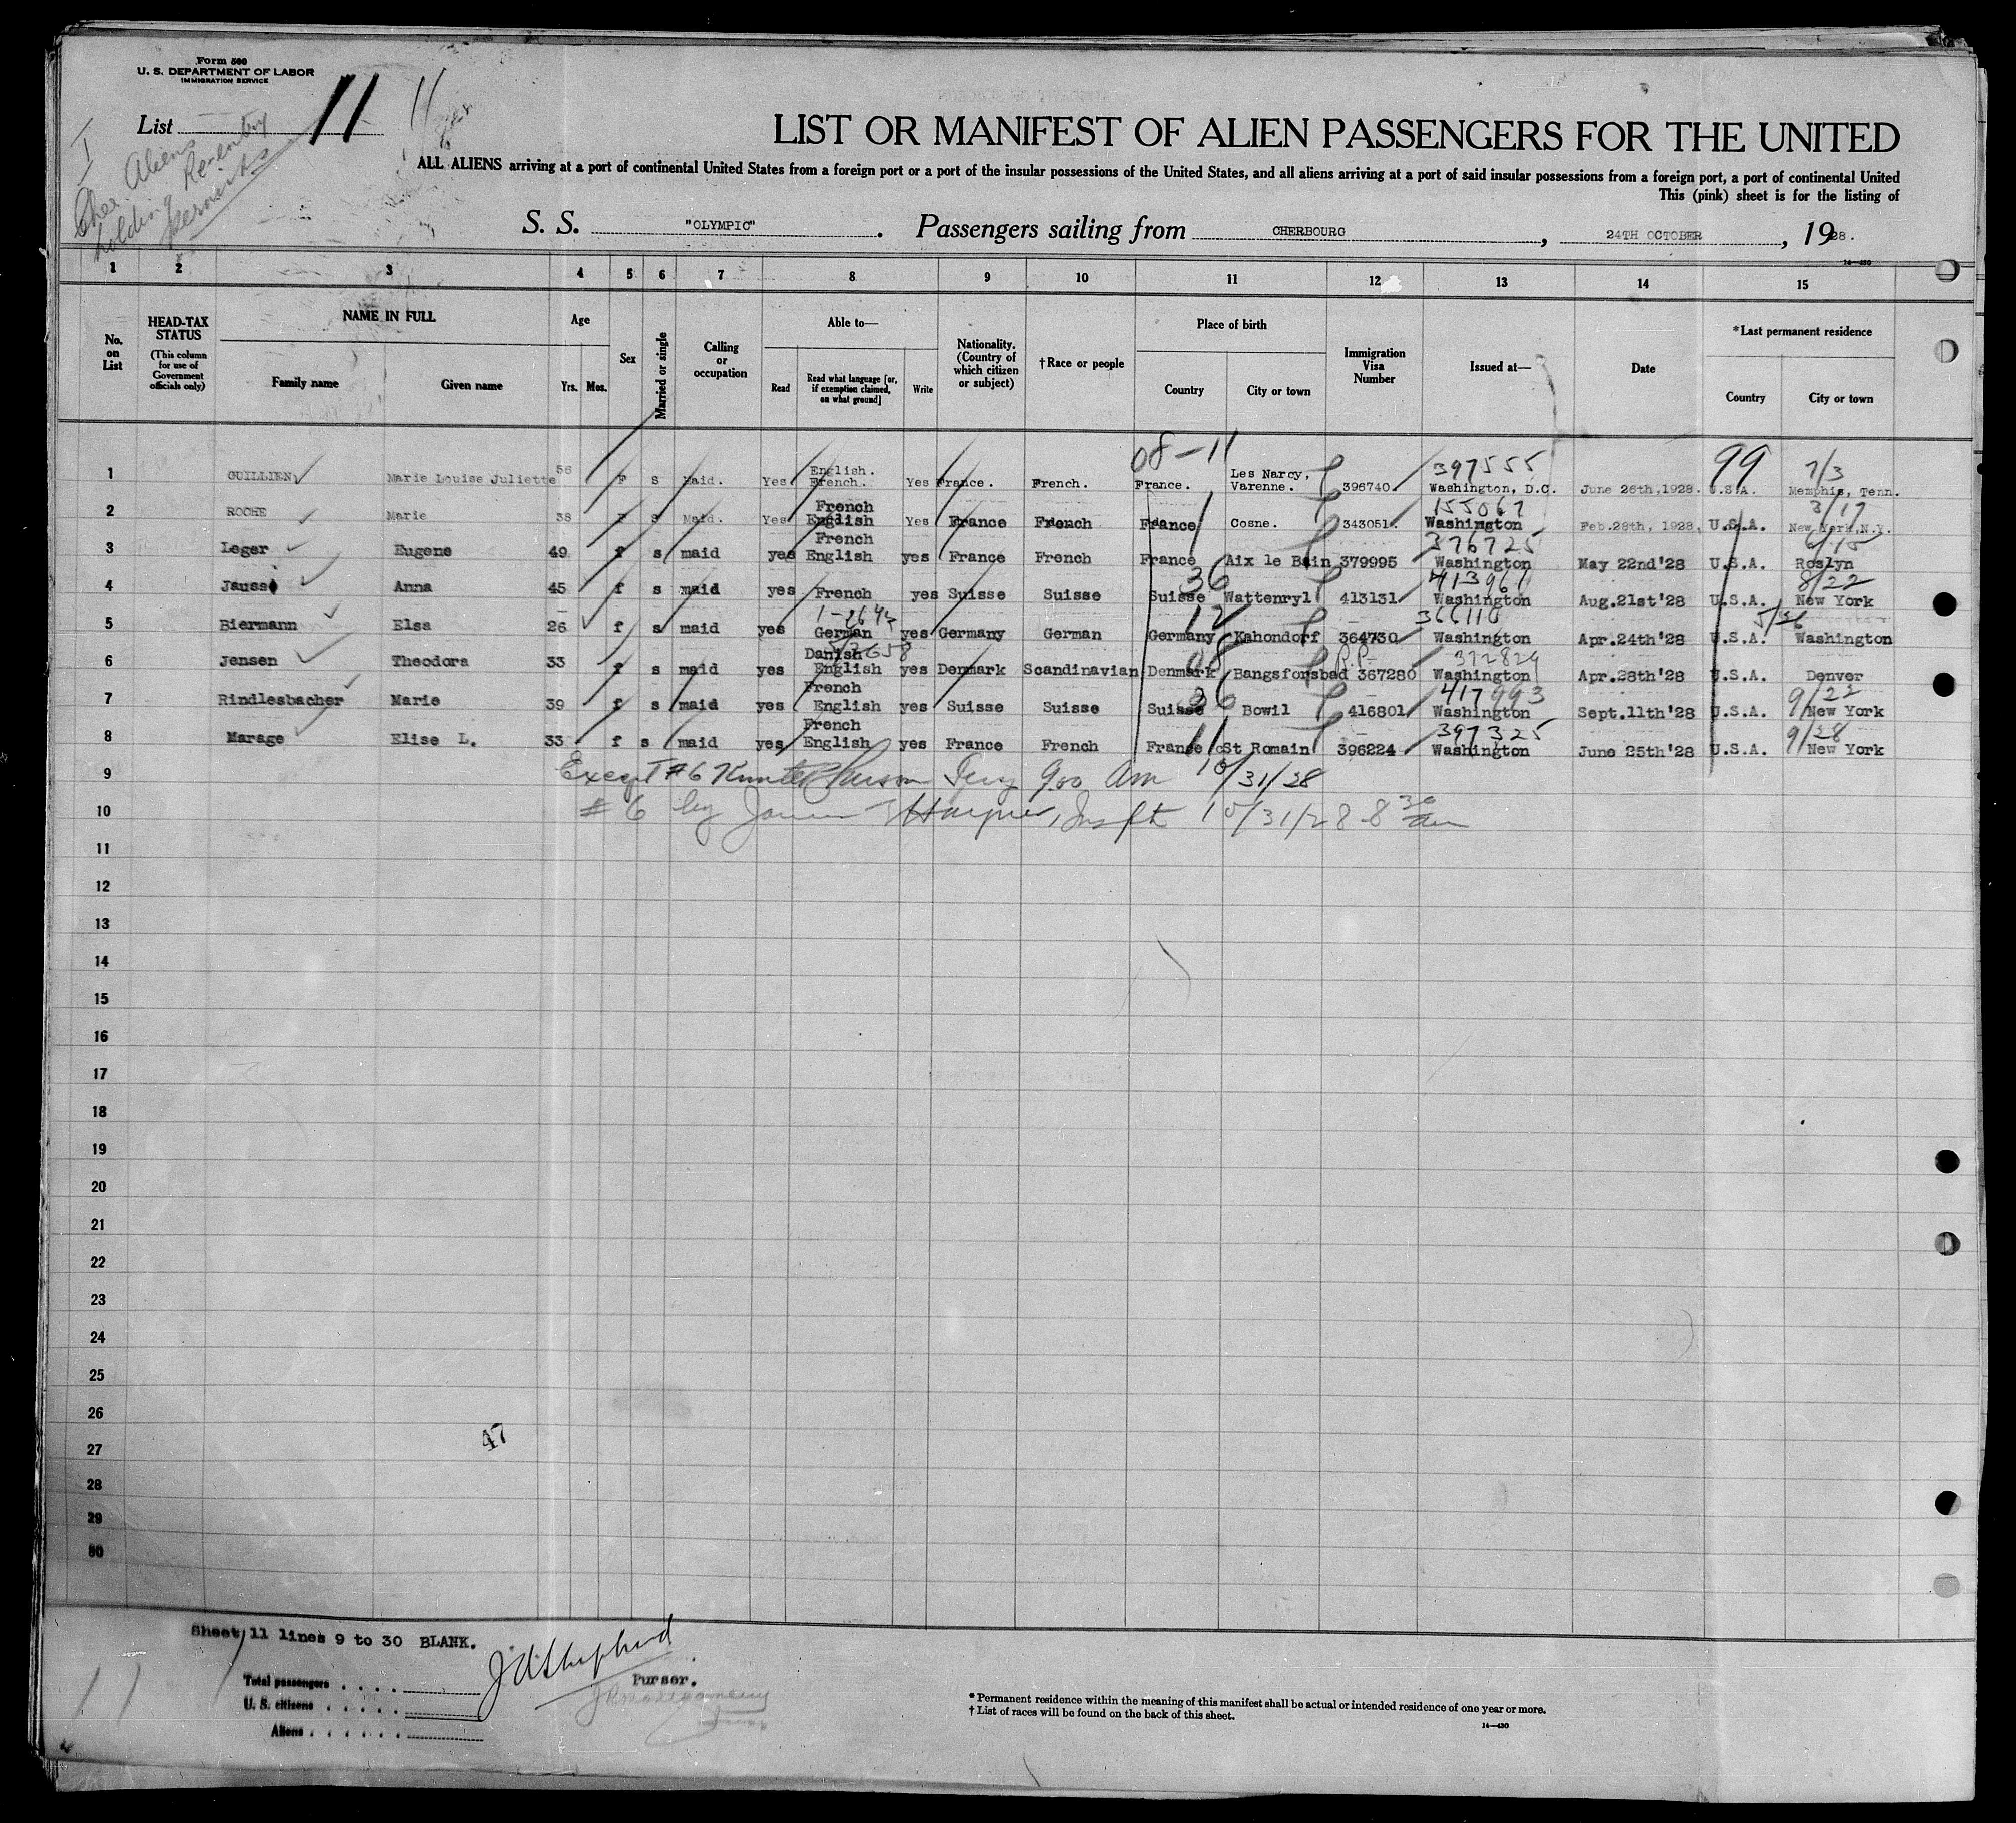 Form 500
U. S. DEPARTMENT OF LABOR
IMMIGRATION SERVICE
List 11 11
I
Aliens
holding Re-entry
permits
LIST OR MANIFEST OF ALIEN PASSENGERS FOR THE UNITED
ALL ALIENS arriving at a port of continental United States from a foreign port or a port of the insular possessions of the United States, and all aliens arriving at a port of said insular possessions from a foreign port, a port of continental United
This (pink) sheet is for the listing of
S. S. "OLYMPIC". Passengers sailing from CHERBOURG, 24TH OCTOBER, 1928.
14—430
1 2 3 4 5 6 7 8 9 10 11 12 13 14 15
No. on List
HEAD-TAX STATUS (This column for use of Government officials only)
NAME IN FULL
Family name Given name
Age
Yrs. Mos.
Sex
Married or single
Calling or occupation
Able to—
Read Read what language [or, if exemption claimed, on what ground] Write
Nationality. (Country of which citizen or subject)
†Race or people
Place of birth
Country City or town
Immigration Visa Number
Issued at—
Date
*Last permanent residence
Country City or town
08-11 397555 99 7/3
1 GUILLIEN Marie Louise Juliette 56 F s Maid. Yes English. French. Yes France. French. France. Les Narcy, Varenne. 396740. Washington, D.C. June 26th,1928. U.S.A. Memphis, Tenn.
155067 3/17
2 ROCHE Marie 38 F S Maid. Yes French English Yes France French France Cosne. 343051. Washington Feb.28th, 1928, U.S.A. New York,N.Y.
376725 6/15
3 Leger Eugene 49 f s maid yes French English yes France French France Aix le Bain 379995 Washington May 22nd'28 U.S.A. Roslyn
36 413961 8/22
4 Jauss Anna 45 f s maid yes French yes Suisse Suisse Suisse Wattenryl 413131 Washington Aug.21st'28 U.S.A. New York
12 366110 5/26
5 Biermann Elsa 26 f s maid yes German yes Germany German Germany Kahondorf 364730 Washington Apr.24th'28 U.S.A. Washington
08 R.P. 372824
6 Jensen Theodora 33 f s maid yes Danish English yes Denmark Scandinavian Denmark Bangsforsbad 367280 Washington Apr.28th'28 U.S.A. Denver
36 417993 9/22
7 Rindlesbacher Marie 39 f s maid yes French English yes Suisse Suisse Suisse Bowil 416801 Washington Sept.11th'28 U.S.A. New York
11 397325 9/28
8 Marage Elise L. 33 f s maid yes French English yes France French France St Romain 396224 Washington June 25th'28 U.S.A. New York
9 Except #6 900 am 10/31/28
10 #6 by 10/31/28 8 30 am
11
12
13
14
15
16
17
18
19
20
21
22
23
24
25
26
27
28
29
30
47
Sheet 11 lines 9 to 30 BLANK.
Total passengers
U. S. citizens
Aliens
J Shepherd
Purser.
11
* Permanent residence within the meaning of this manifest shall be actual or intended residence of one year or more.
† List of races will be found on the back of this sheet.
14—430